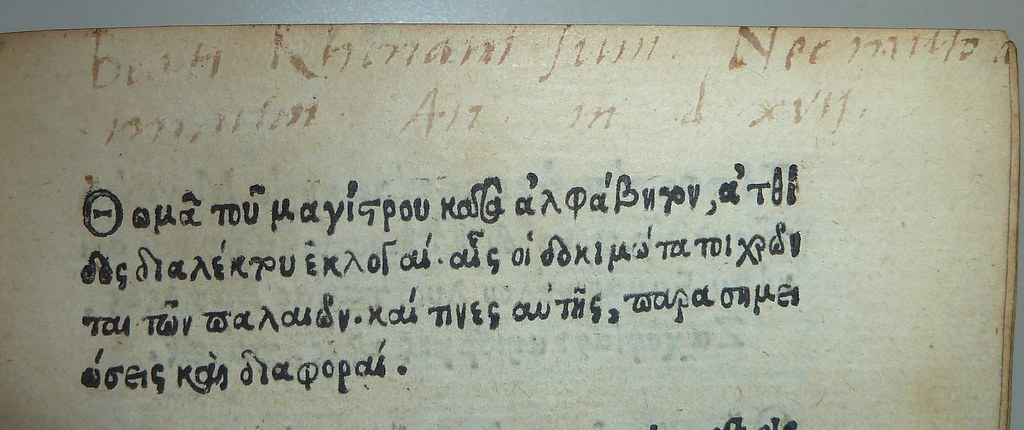 Beati Rhenani sum. Nec muto
minum. An. m d xvij.
Θωμᾶ τοῦ μαγίστρου κατὰ ἀλφάβητον, ἀτθί
δος διαλέκτου ἐκλογαί. αἷς οἱ δοκιμώτατοι χρῶν
ται τῶν παλαιῶν. καί τινες αὐτῆς, παρασημει
ώσεις καὶ διαφοραί.